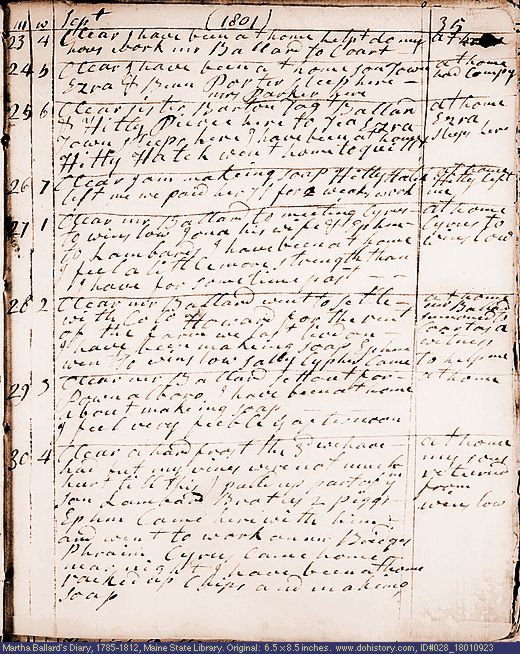 m w Sept (1801) 35
23 4 Clear I have been at home helpt do my at home
hous work mr Ballard to Coart
24 5 Clear I have been at home son Town at home
Ezra & Benn Porter sleep here had Company
mrs Parker here
25 6 Clear sister Barton Jag Ballard at home
& Hitty Pierce here to Tea Ezra Ezra
Town sleeps here I have been at home sleeps here
Hitty Hatch went home to quilt
26 7 Clear I am making soap Hitty Hatch at home
left me we paid her 7/ for a weaks work Hitty left
me
27 1 Clear mr Ballard to meeting Cyrus at home
to winslow Jona his wife & Ephm Cyrus to
to Lambards I have been at home winslow
I feel a little more strength than
I have for some time past
28 2 Clear mr Ballard went to settle at home
with Colo Howard for the rent mr Balld
of the farm we last lived on summoned to
I have been making soap Cyrus Coart as a
witness
went to winslow Sally Cypher Came to help me
29 3 Clear mr Ballard sett out for at home
Pownalboro I have been at home
about making soap
I feel very feeble this afternoon
30 4 Clear a hard frost the 3d we have at home
had but my vines were not much my sons
hurt till this I pull up part of my returned
son Lambard Brot us 2 piggs from
Ephm Came here with him winslow
and went to work on mr
Cyrus Came home
near night I have been at home
racked up Chips and making
soap
Martha Ballard's Diary, 1785-1812, Maine State Library. Original: 6.5 x 8.5 inches. www.dohistory.com, ID#028_18010923